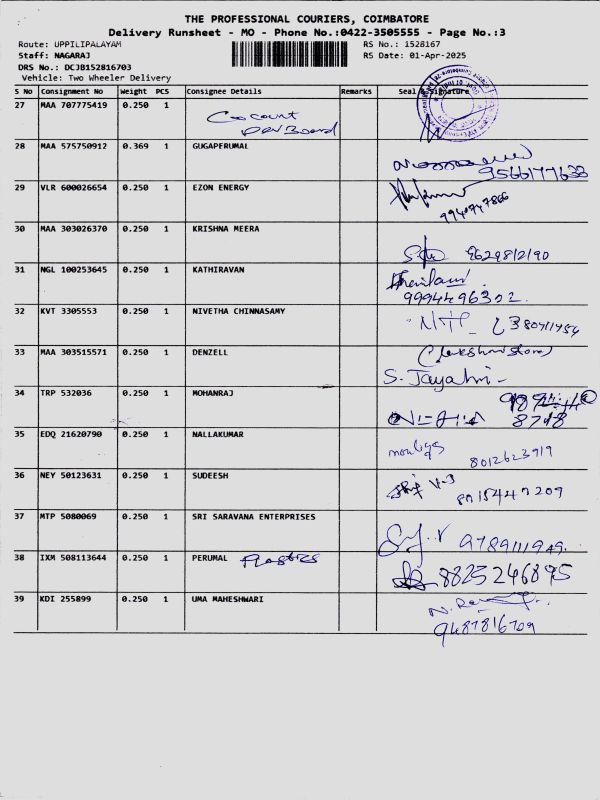 THE PROFESSIONAL COURIERS, COIMBATORE
Delivery Runsheet - MO - Phone No.:0422-3505555 - Page No.:3
Route: UPPILIPALAYAM RS No.: 1528167
Staff: NAGARAJ RS Date: 01-Apr-2025
DRS No.: DCJB152816703
Vehicle: Two Wheeler Delivery
S No Consignment No Weight PCS Consignee Details Remarks Seal & Signature
27 MAA 707775419 0.250 1
28 MAA 575750912 0.369 1 GUGAPERUMAL
9566177633
29 VLR 600026654 0.250 1 EZON ENERGY
9940747866
30 MAA 303026370 0.250 1 KRISHNA MEERA
9629812190
31 NGL 100253645 0.250 1 KATHIRAVAN
9994496302
32 KVT 3305553 0.250 1 NIVETHA CHINNASAMY
33 MAA 303515571 0.250 1 DENZELL
S. Jayahri
34 TRP 532036 0.250 1 MOHANRAJ
8718
35 EDQ 21620790 0.250 1 NALLAKUMAR
8012623919
36 NEY 50123631 0.250 1 SUDEESH
8015447209
37 MTP 5080069 0.250 1 SRI SARAVANA ENTERPRISES
9789111949
38 IXM 508113644 0.250 1 PERUMAL Plastics
8825246895
39 KDI 255899 0.250 1 UMA MAHESHWARI
9487816709